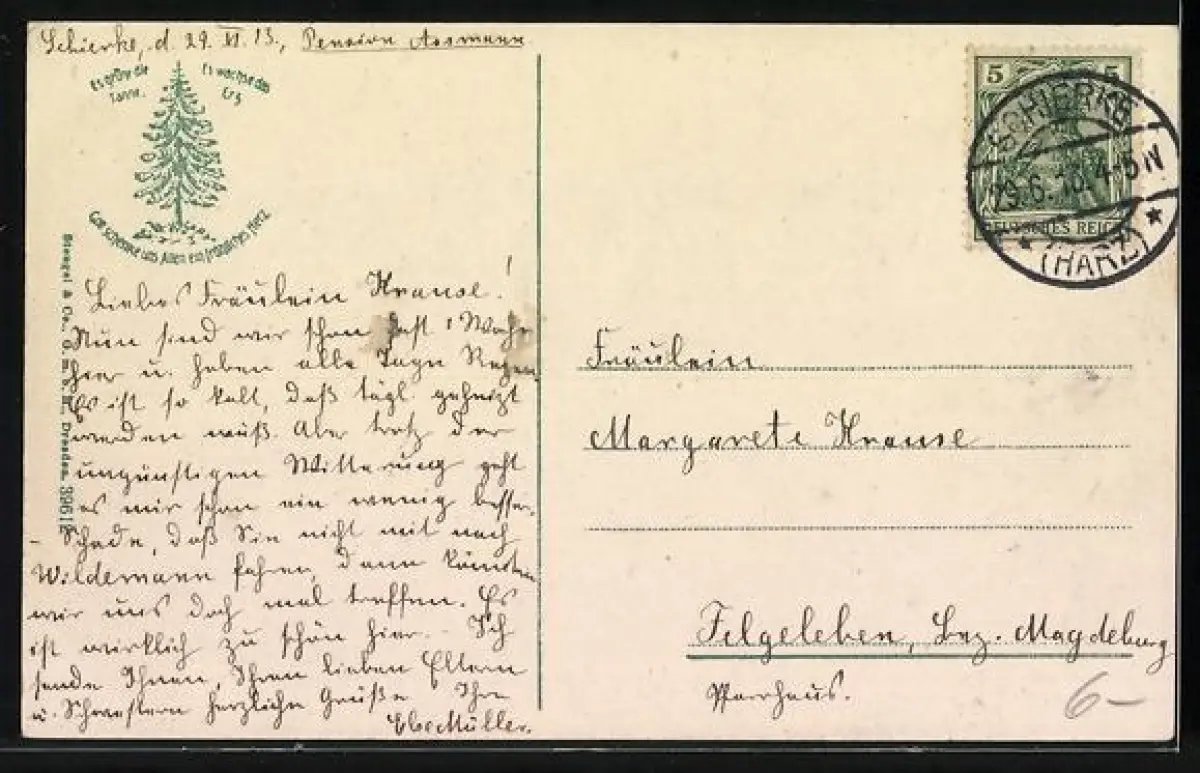 Schierke, d. 29. VI. 13., Pension Assmann
Es grüne die
Tanne.
Es wachse das
Erz
Gott schenke uns Allen ein fröhliches Herz
Stengel & Co., G. m. b. H., Dresden. 3961
Liebes Fräulein Krause!
Nun sind wir schon fast 1 Woche
hier u. haben alle Tage Regen.
Es ist so kalt, daß tägl. geheizt
werden muß. Aber trotz der
ungünstigen Witterung geht
es mir schon ein wenig besser.
- Schade, daß Sie nicht mit nach
Wildemann fahren, dann könnten
wir uns doch mal treffen. Es
ist wirklich zu schön hier. - Ich
sende Ihnen, Ihren lieben Eltern
u. Schwestern herzliche Grüße Ihre
Müller.
5 5
DEUTSCHES REICH
SCHIERKE
29.6.13. 4-5 N
* (HARZ) *
Fräulein
Margarete Krause
Felgeleben, Bez. Magdeburg
Pfarrhaus.
6-